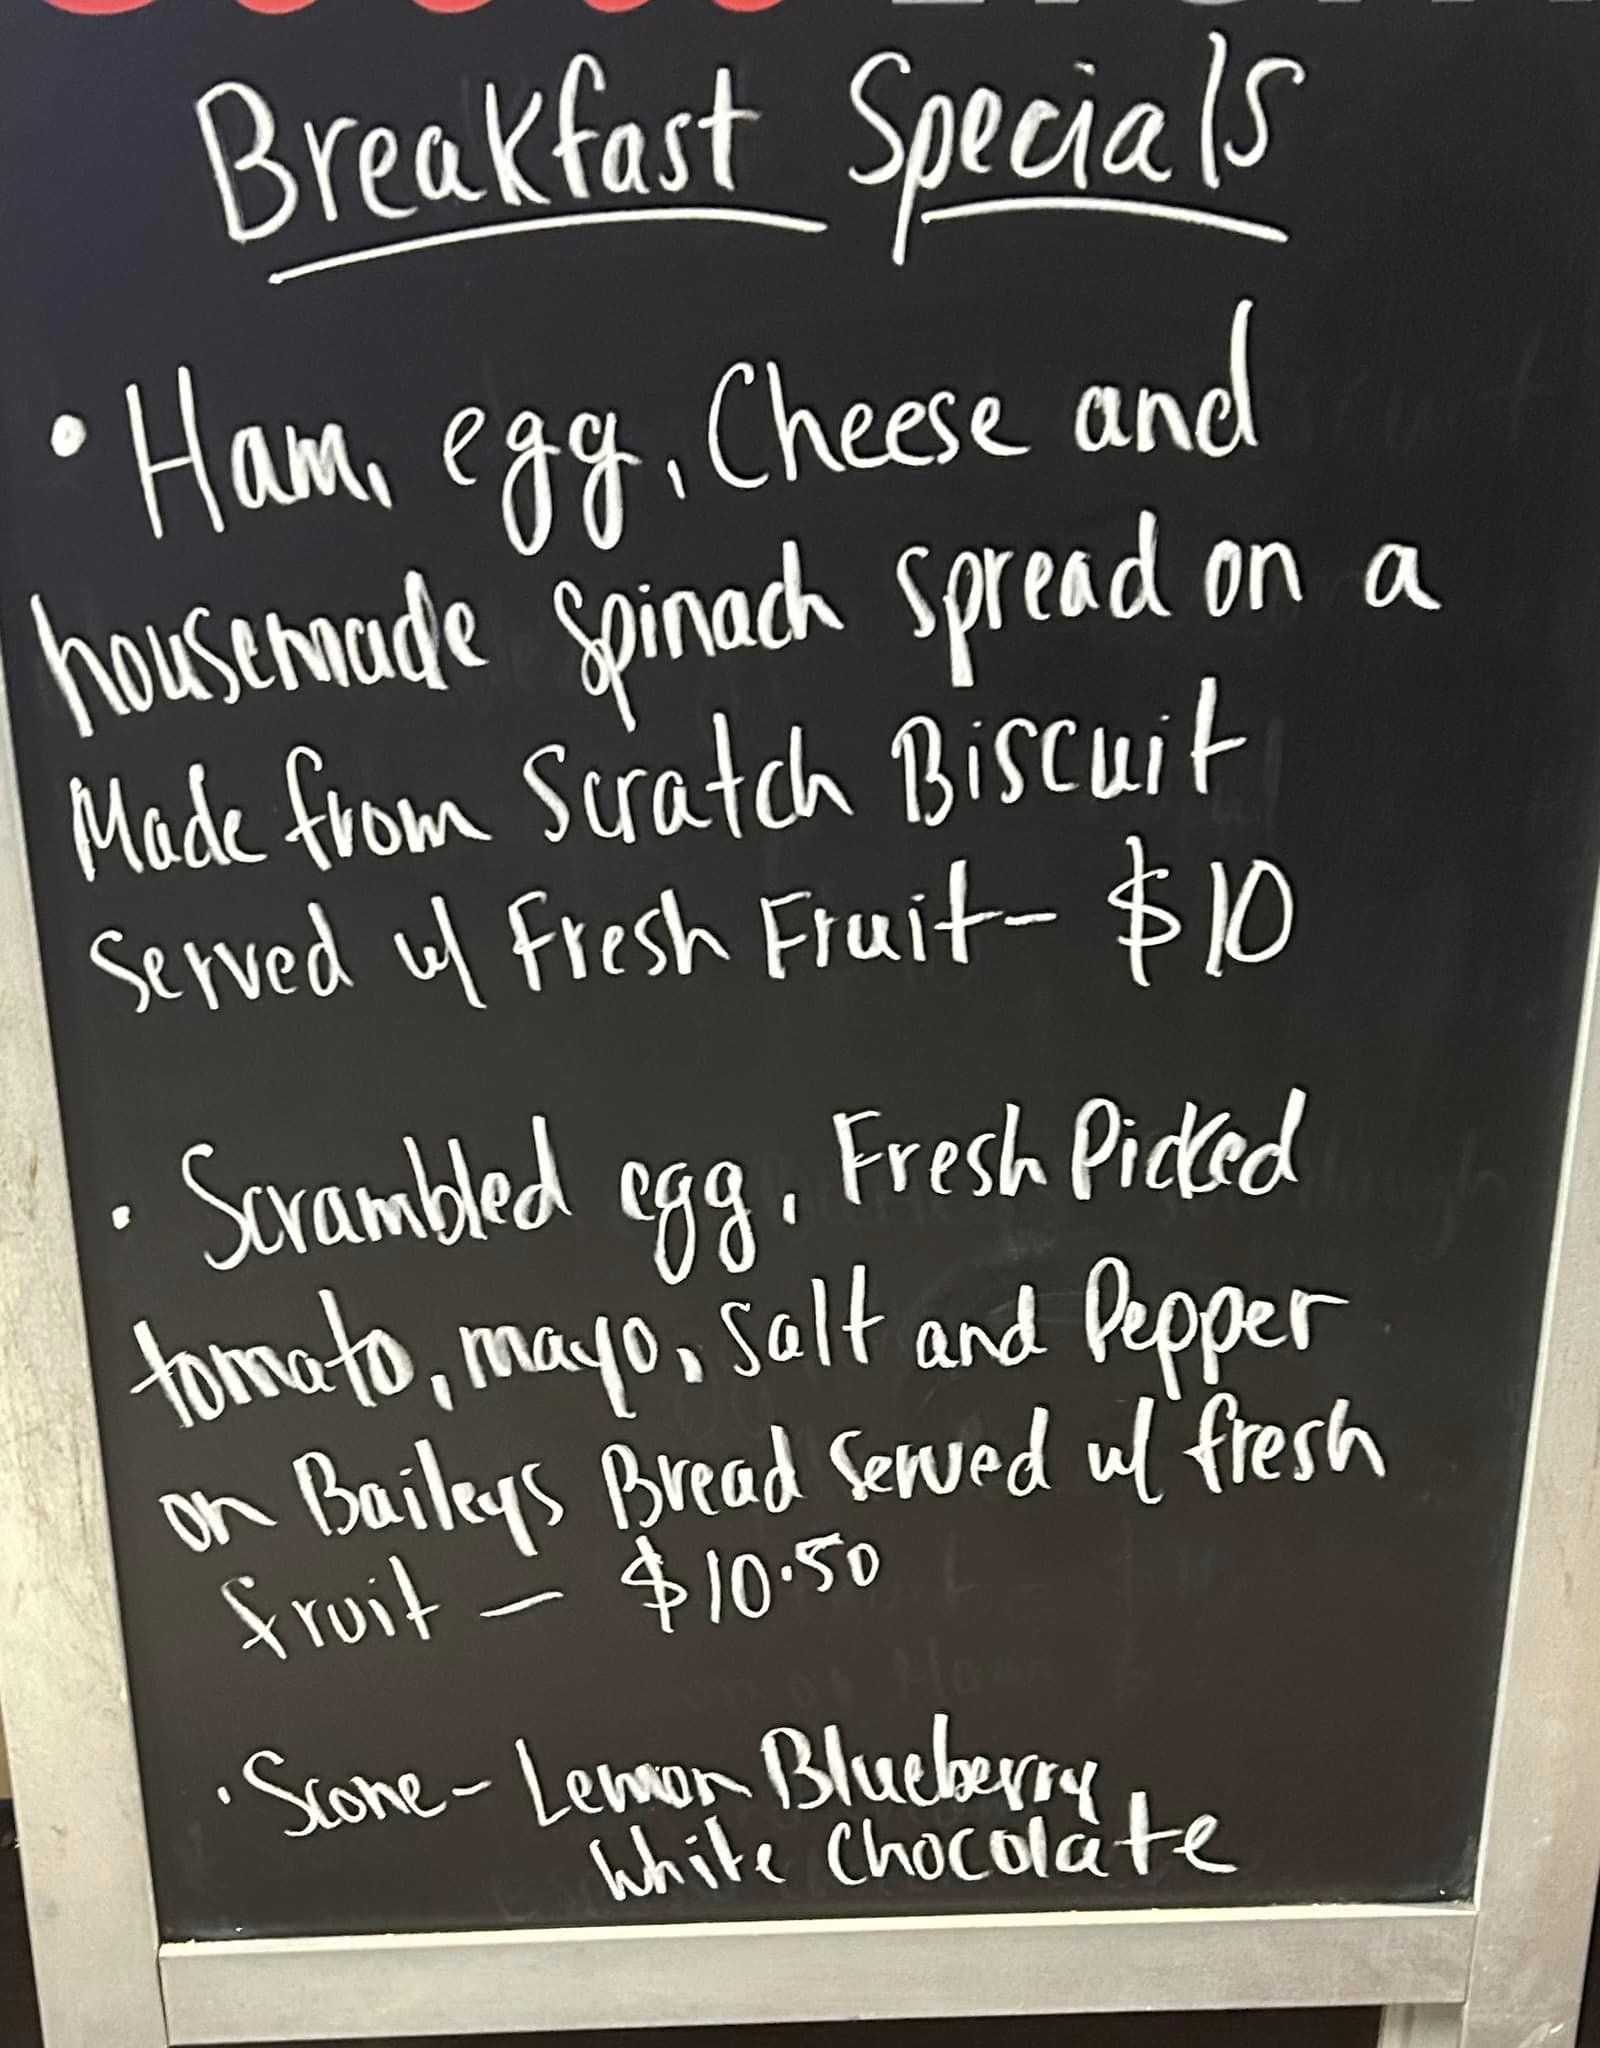 Breakfast Specials
• Ham, egg, Cheese and
housemade spinach spread on a
Made from Scratch Biscuit
Served w/ Fresh Fruit - $10
• Scrambled egg, Fresh Picked
tomato, mayo, Salt and Pepper
on Baileys Bread Served w/ fresh
fruit - $10.50
• Scone - Lemon Blueberry
White Chocolate